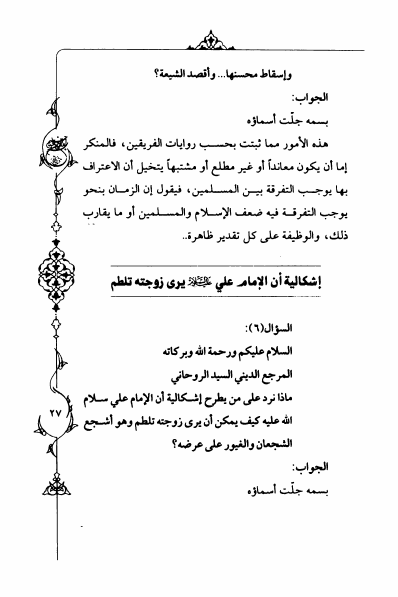 وإسقاط محسنها... وأقصد الشيعة؟
الجواب:
بسمه جلّت أسماؤه
هذه الأمور مما ثبتت بحسب روايات الفريقين، فالمنكر
إما أن يكون معانداً أو غير مطلع أو مشتبهاً يتخيل أن الاعتراف
بها يوجب التفرقة بين المسلمين، فيقول إن الزمان بنحو
يوجب التفرقة فيه ضعف الإسلام والمسلمين أو ما يقارب
ذلك، والوظيفة على كل تقدير ظاهرة..
إشكالية أن الإمام علي يرى زوجته تلطم
السؤال(٦):
السلام عليكم ورحمة الله وبركاته
المرجع الديني السيد الروحاني
ماذا نرد على من يطرح إشكالية أن الإمام علي سلام
الله عليه كيف يمكن أن يرى زوجته تلطم وهو أشجع
الشجعان والغيور على عرضه؟
٢٧
الجواب:
بسمه جلّت أسماؤه